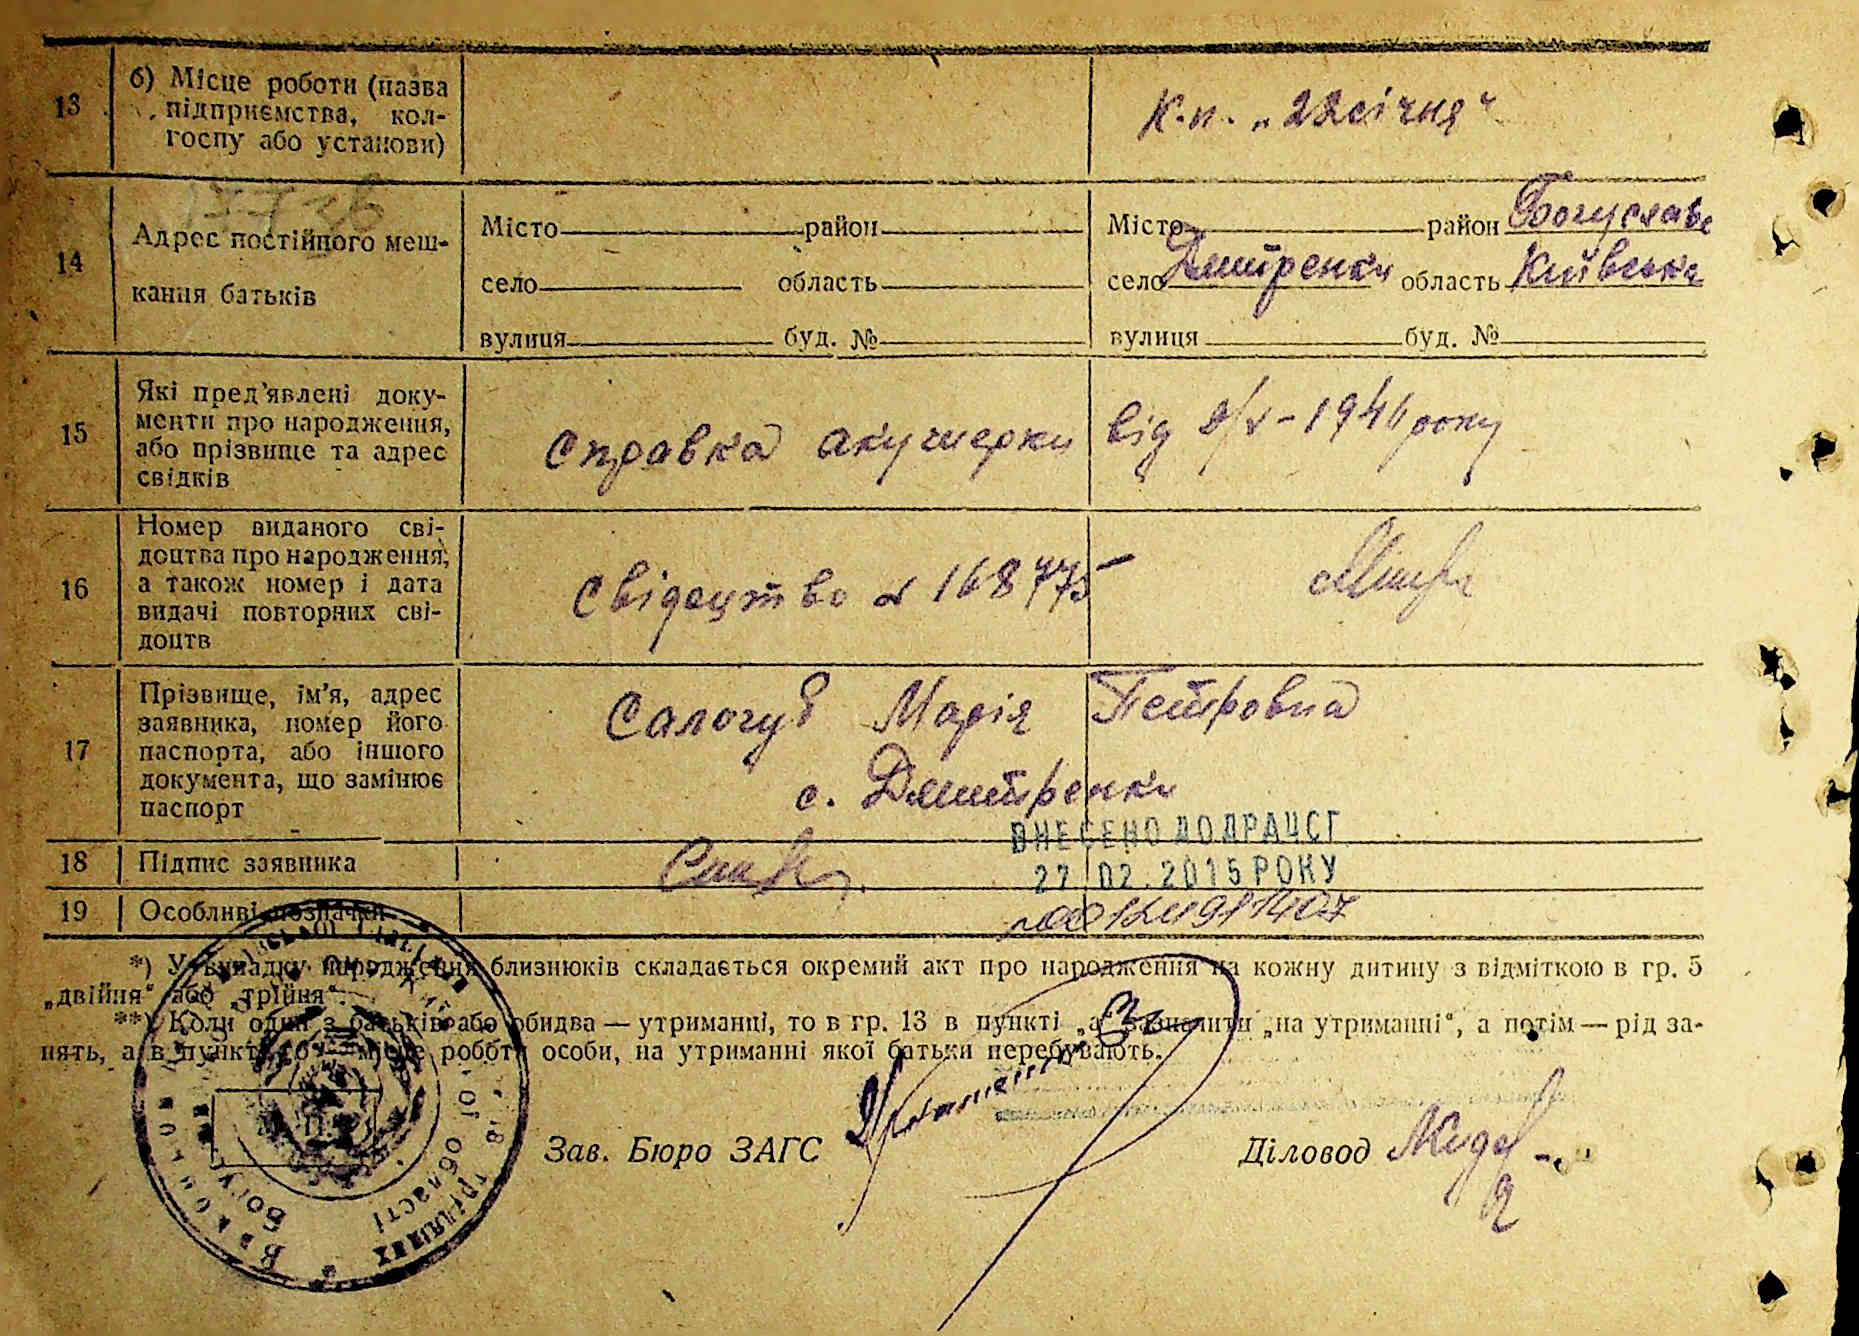 13
б) Місце роботи (назва
підприємства, кол-
госпу або установи)
К.п. „22 січня“
17736
14
Адрес постійного меш-
кання батьків
Місто район
село область
вулиця буд. №
Місто район Богуславс
село Дмитренки область Київська
вулиця буд. №
15
Які пред'явлені доку-
менти про народження,
або прізвище та адрес
свідків
Справка акушерки від 2/X-1946 року
16
Номер виданого сві-
доцтва про народження,
а також номер і дата
видачі повторних сві-
доцтв
Свідоцтво № 168775
17
Прізвище, ім'я, адрес
заявника, номер його
паспорта, або іншого
документа, що замінює
паспорт
Салогуб Марія Петровна
с. Дмитренки
18
Підпис заявника
ВНЕСЕНО ДО ДРАЦСГ
27.02.2015 РОКУ
19
Особливі позначки
*) У випадку народження близнюків складається окремий акт про народження на кожну дитину з відміткою в гр. 5
„двійня“ або „трійня“.
**) Коли один з батьків або обидва — утриманці, то в гр. 13 в пункті „а“ зазначити „на утриманні“, а потім — рід за-
нять, а в пункті „б“ — місце роботи особи, на утриманні якої батьки перебувають.
Зав. Бюро ЗАГС
Діловод
області